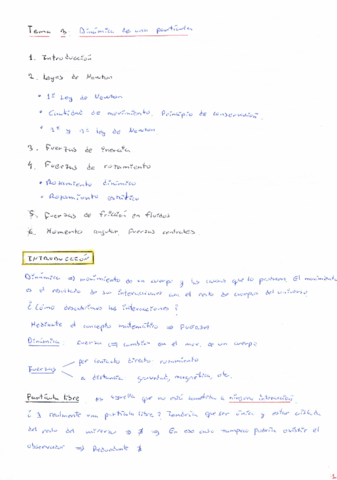 Tema 3: Dinámica de una partícula
1. Introducción
2. Leyes de Newton
• 1ª Ley de Newton
• Cantidad de movimiento, Principio de conservación
• 2ª y 3ª Ley de Newton
3. Fuerzas de inercia
4. Fuerzas de rozamiento
• Rozamiento dinámico
• Rozamiento estático
5. Fuerzas de fricción en fluidos
6. Momento angular, fuerzas centrales
INTRODUCCIÓN
Dinámica ⇒ movimiento de un cuerpo y las causas que lo producen. El movimiento
es el resultado de sus interacciones con el resto de cuerpos del universo
¿Cómo describimos las interacciones?
Mediante el concepto matemático ⇒ Fuerzas
Dinámica Fuerza ⇒ cambios en el mov. de un cuerpo
Fuerzas
por contacto directo rozamiento
a distancia gravedad, magnética, etc.
Partícula libre es aquella que no está sometida a ninguna interacción
¿∃ realmente una partícula libre? Tendría que ser única y estar aislada
del resto del universo ⇒ ∄ ⇒ En ese caso tampoco podría existir el
observador ⇒ Realmente ∄
1